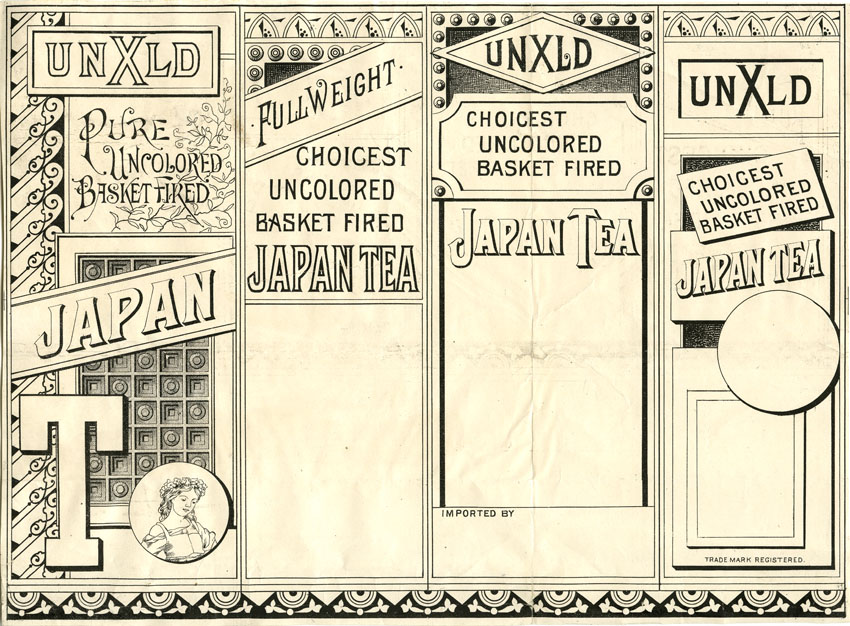 UNXLD
PURE
UNCOLORED
BASKET FIRED
JAPAN
T
FULL WEIGHT.
CHOICEST
UNCOLORED
BASKET FIRED
JAPAN TEA
UNXLD
CHOICEST
UNCOLORED
BASKET FIRED
JAPAN TEA
IMPORTED BY
UNXLD
CHOICEST
UNCOLORED
BASKET FIRED
JAPAN TEA
TRADE MARK REGISTERED.